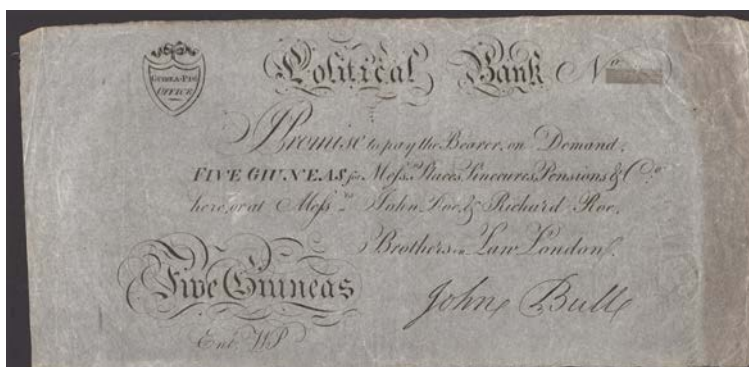 GUINEA-PIG
OFFICE
Political Bank No
I Promise to pay the Bearer, on Demand,
FIVE GIUNEAS for Mess.rs Places, Sinecures, Pensions & Co.
here, or at Mess.rs John Doe, & Richard Roe,
Brothers in Law London.
Five Guineas
John Bull
Ent. WP